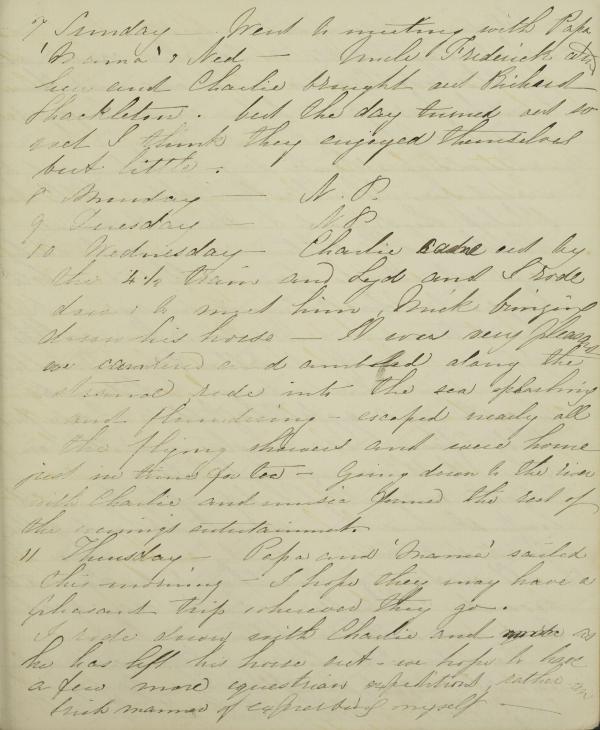 7 Sunday — Went to meeting with Papa
'Mama' & Ned — Uncle Frederick
here and Charlie brought out Richard
Shackleton. but the day turned out so
wet I think they enjoyed themselves
but little —.
8 Munday — N. P.
9 Tuesday — N P
10 Wednesday — Charlie came out by
the 4½ train and Lyd and I rode
down to meet him, Mick bringing
down his horse — It was very pleasant
we cantered and ambled along the
strand rode into the sea splashing
and floundering — escaped nearly all
the flying showers and were home
just in time for tea — Going down to the
with Charlie and music formed the rest of
the evenings entertainment.
11 Thursday — Papa and 'Mama' sailed
this morning — I hope they may have a
pleasant trip wherever they go.
I rode down with Charlie and as
he has left his horse out — we hope to have
a few more equestrian expeditions, rather an
Irish manner of expressing myself —